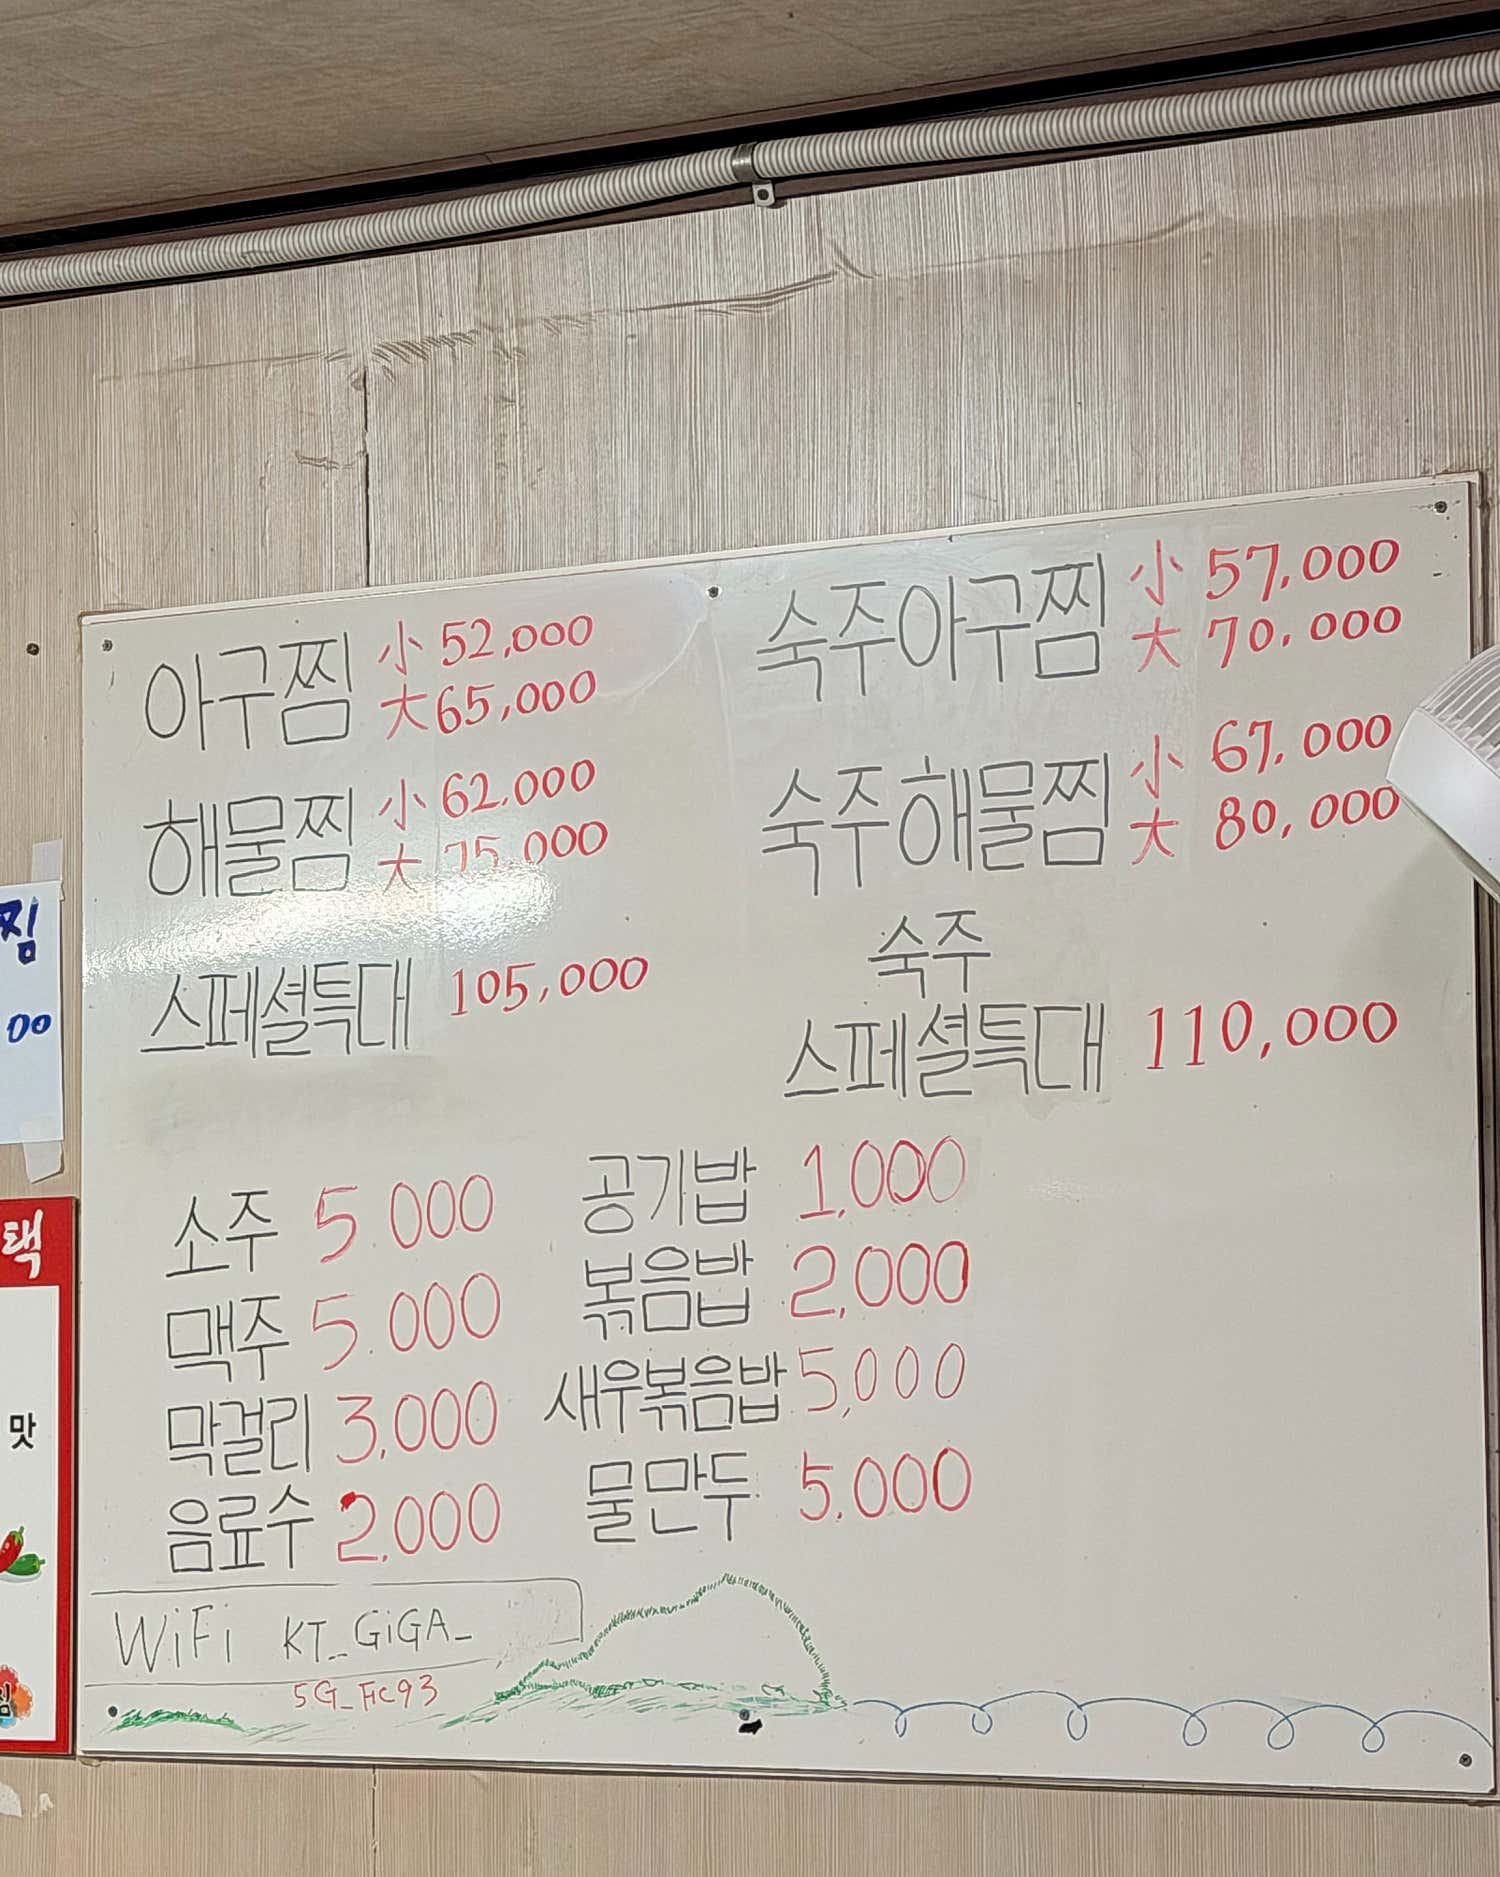 아구찜 小 52,000
大 65,000
해물찜 小 62,000
大 75,000
스페셜특대 105,000
숙주아구찜 小 57,000
大 70,000
숙주해물찜 小 67,000
大 80,000
숙주
스페셜특대 110,000
소주 5.000
맥주 5.000
막걸리 3,000
음료수 2,000
공기밥 1,000
볶음밥 2,000
새우볶음밥 5,000
물만두 5,000
WiFi KT_GiGA_
5G_Fic93
찜
00
택
맛